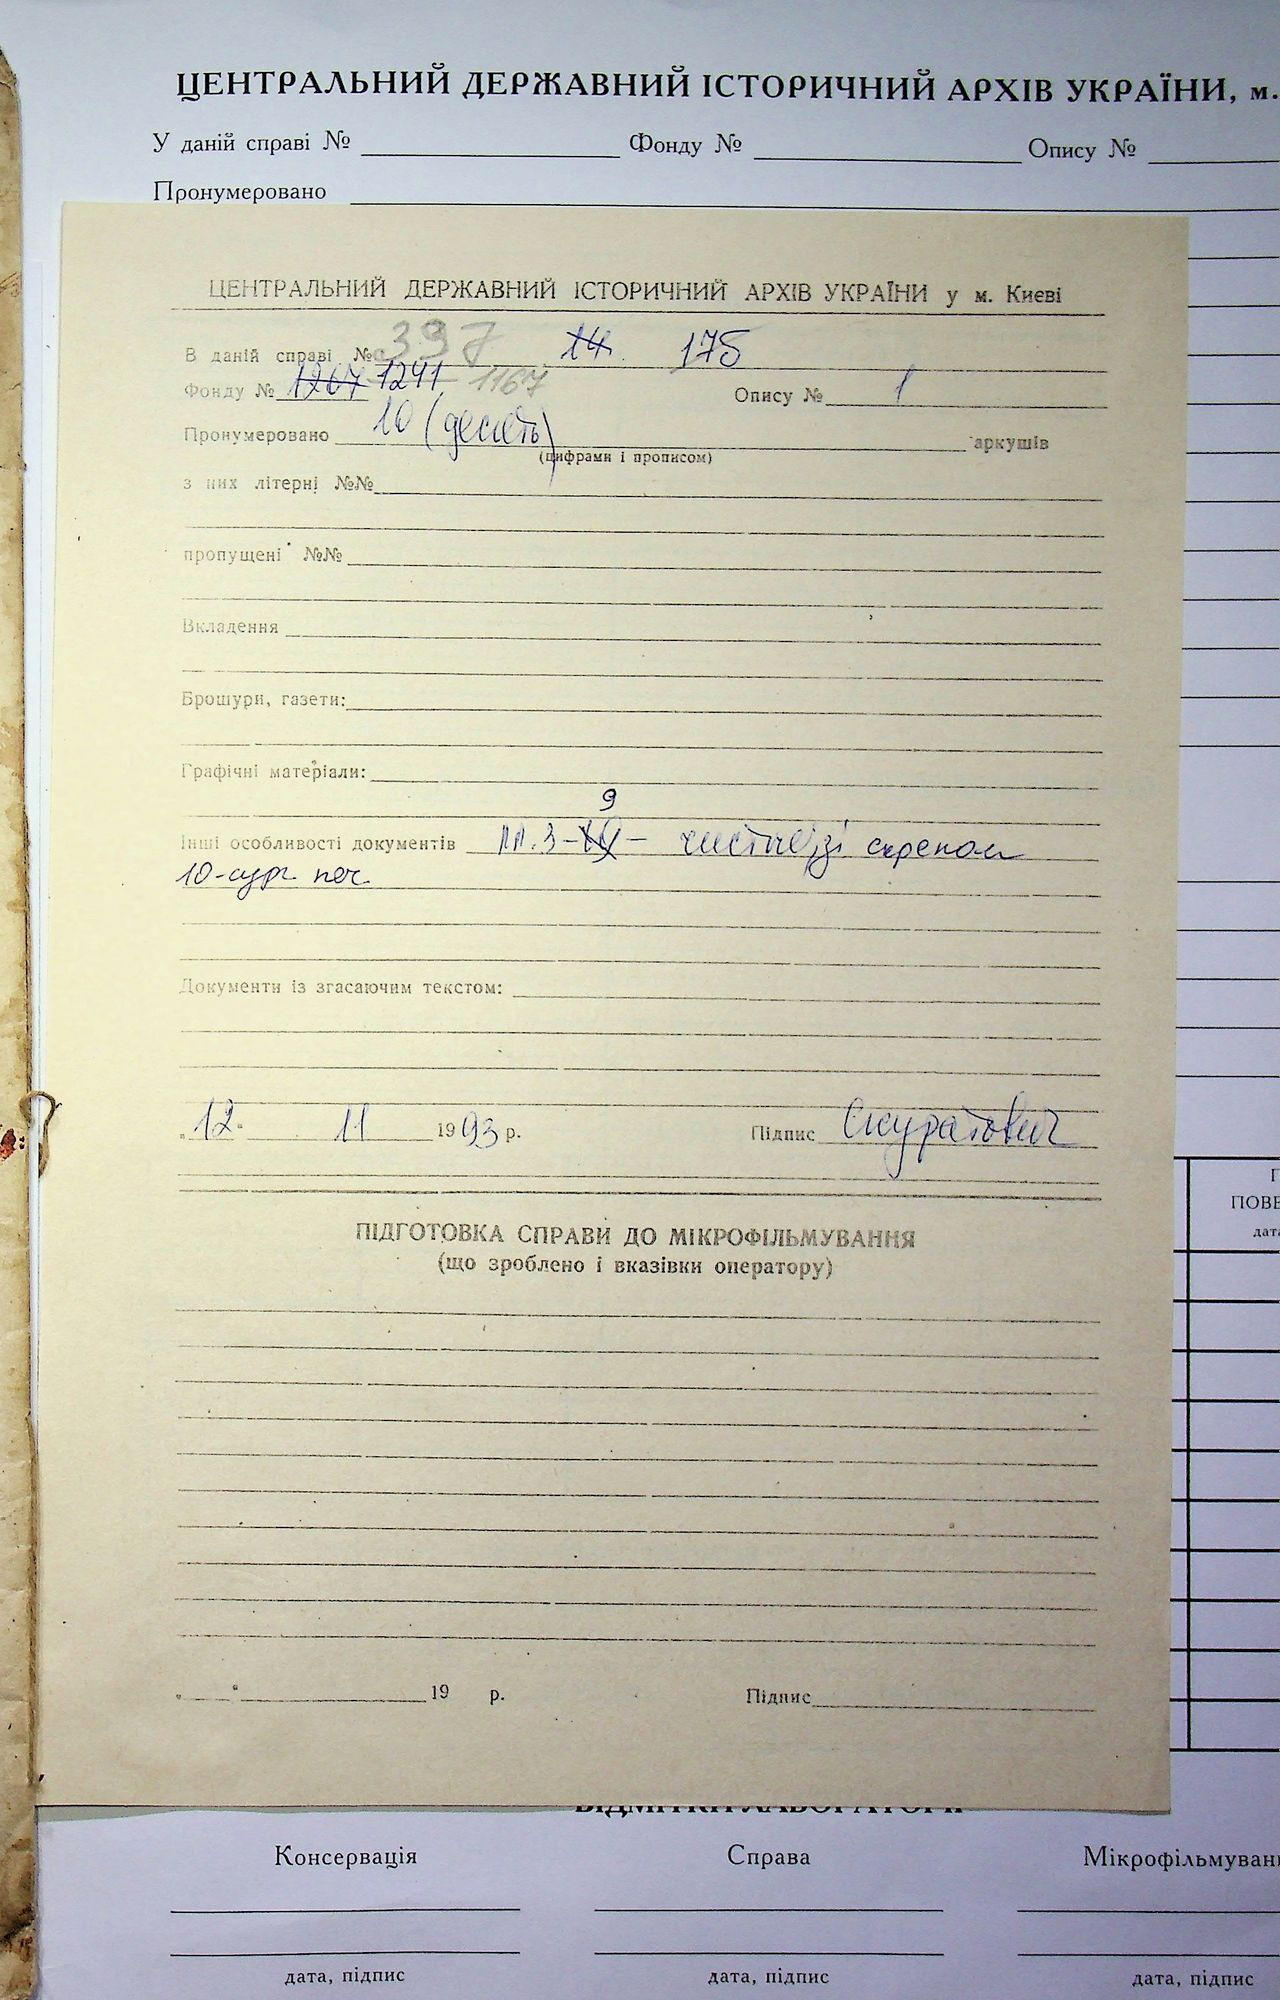 ЦЕНТРАЛЬНИЙ ДЕРЖАВНИЙ ІСТОРИЧНИЙ АРХІВ УКРАЇНИ, м.
У даній справі № Фонду № Опису №
Пронумеровано
ЦЕНТРАЛЬНИЙ ДЕРЖАВНИЙ ІСТОРИЧНИЙ АРХІВ УКРАЇНИ у м. Києві
В даній справі № 397 14. 175
Фонду № 1267 1241 1167 Опису № 1
Пронумеровано 10 (десять) аркушів
(цифрами і прописом)
з них літерні №№
пропущені №№
Вкладення
Брошури, газети:
Графічні матеріали:
9
Інші особливості документів 3-10 - чисті зі скрепом
10-сург. печ.
Документи із згасаючим текстом:
„12“ 11 1993 р. Підпис Скуратович
ПІДГОТОВКА СПРАВИ ДО МІКРОФІЛЬМУВАННЯ
(що зроблено і вказівки оператору)
„ “ 19 р. Підпис
ПОВЕ
дата
ВІДМІТКИ ЛАБОРАТОРІЇ
Консервація Справа Мікрофільмуван
дата, підпис дата, підпис дата, підпис